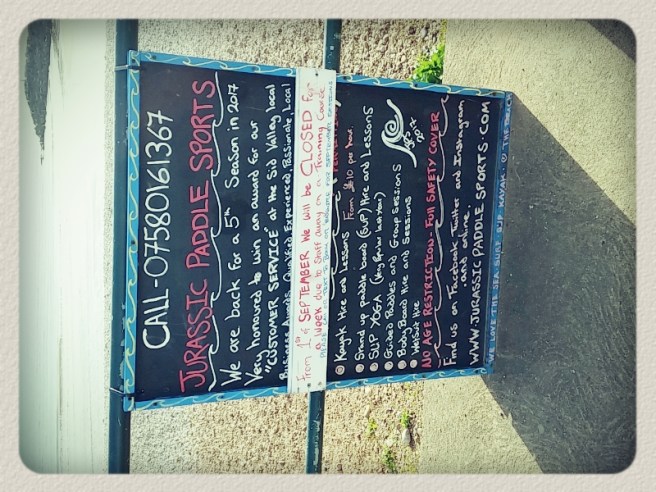 CALL-07580161367
JURASSIC PADDLE SPORTS
We are back for a 5th Season in 2017
Very honoured to win an award for our
"CUSTOMER SERVICE" at the Sid Valley local
Business Awards. Qualified, Experienced, Passionate, Local
From 1st of SEPTEMBER We will be CLOSED for
a Week due to Staff away on a Training Course
Kayak Hire and Lessons From £10 per hour
Stand up paddle board (SUP) Hire and Lessons
SUP YOGA
Guided Paddles and Group Sessions
Body Board Hire and Sessions
Wetsuit Hire
NO AGE RESTRICTION. Full SAFETY COVER
Find us on Facebook, Twitter and Instagram
and online.
WWW.JURASSICPADDLESPORTS.COM
WE LOVE THE SEA SURF SUP KAYAK